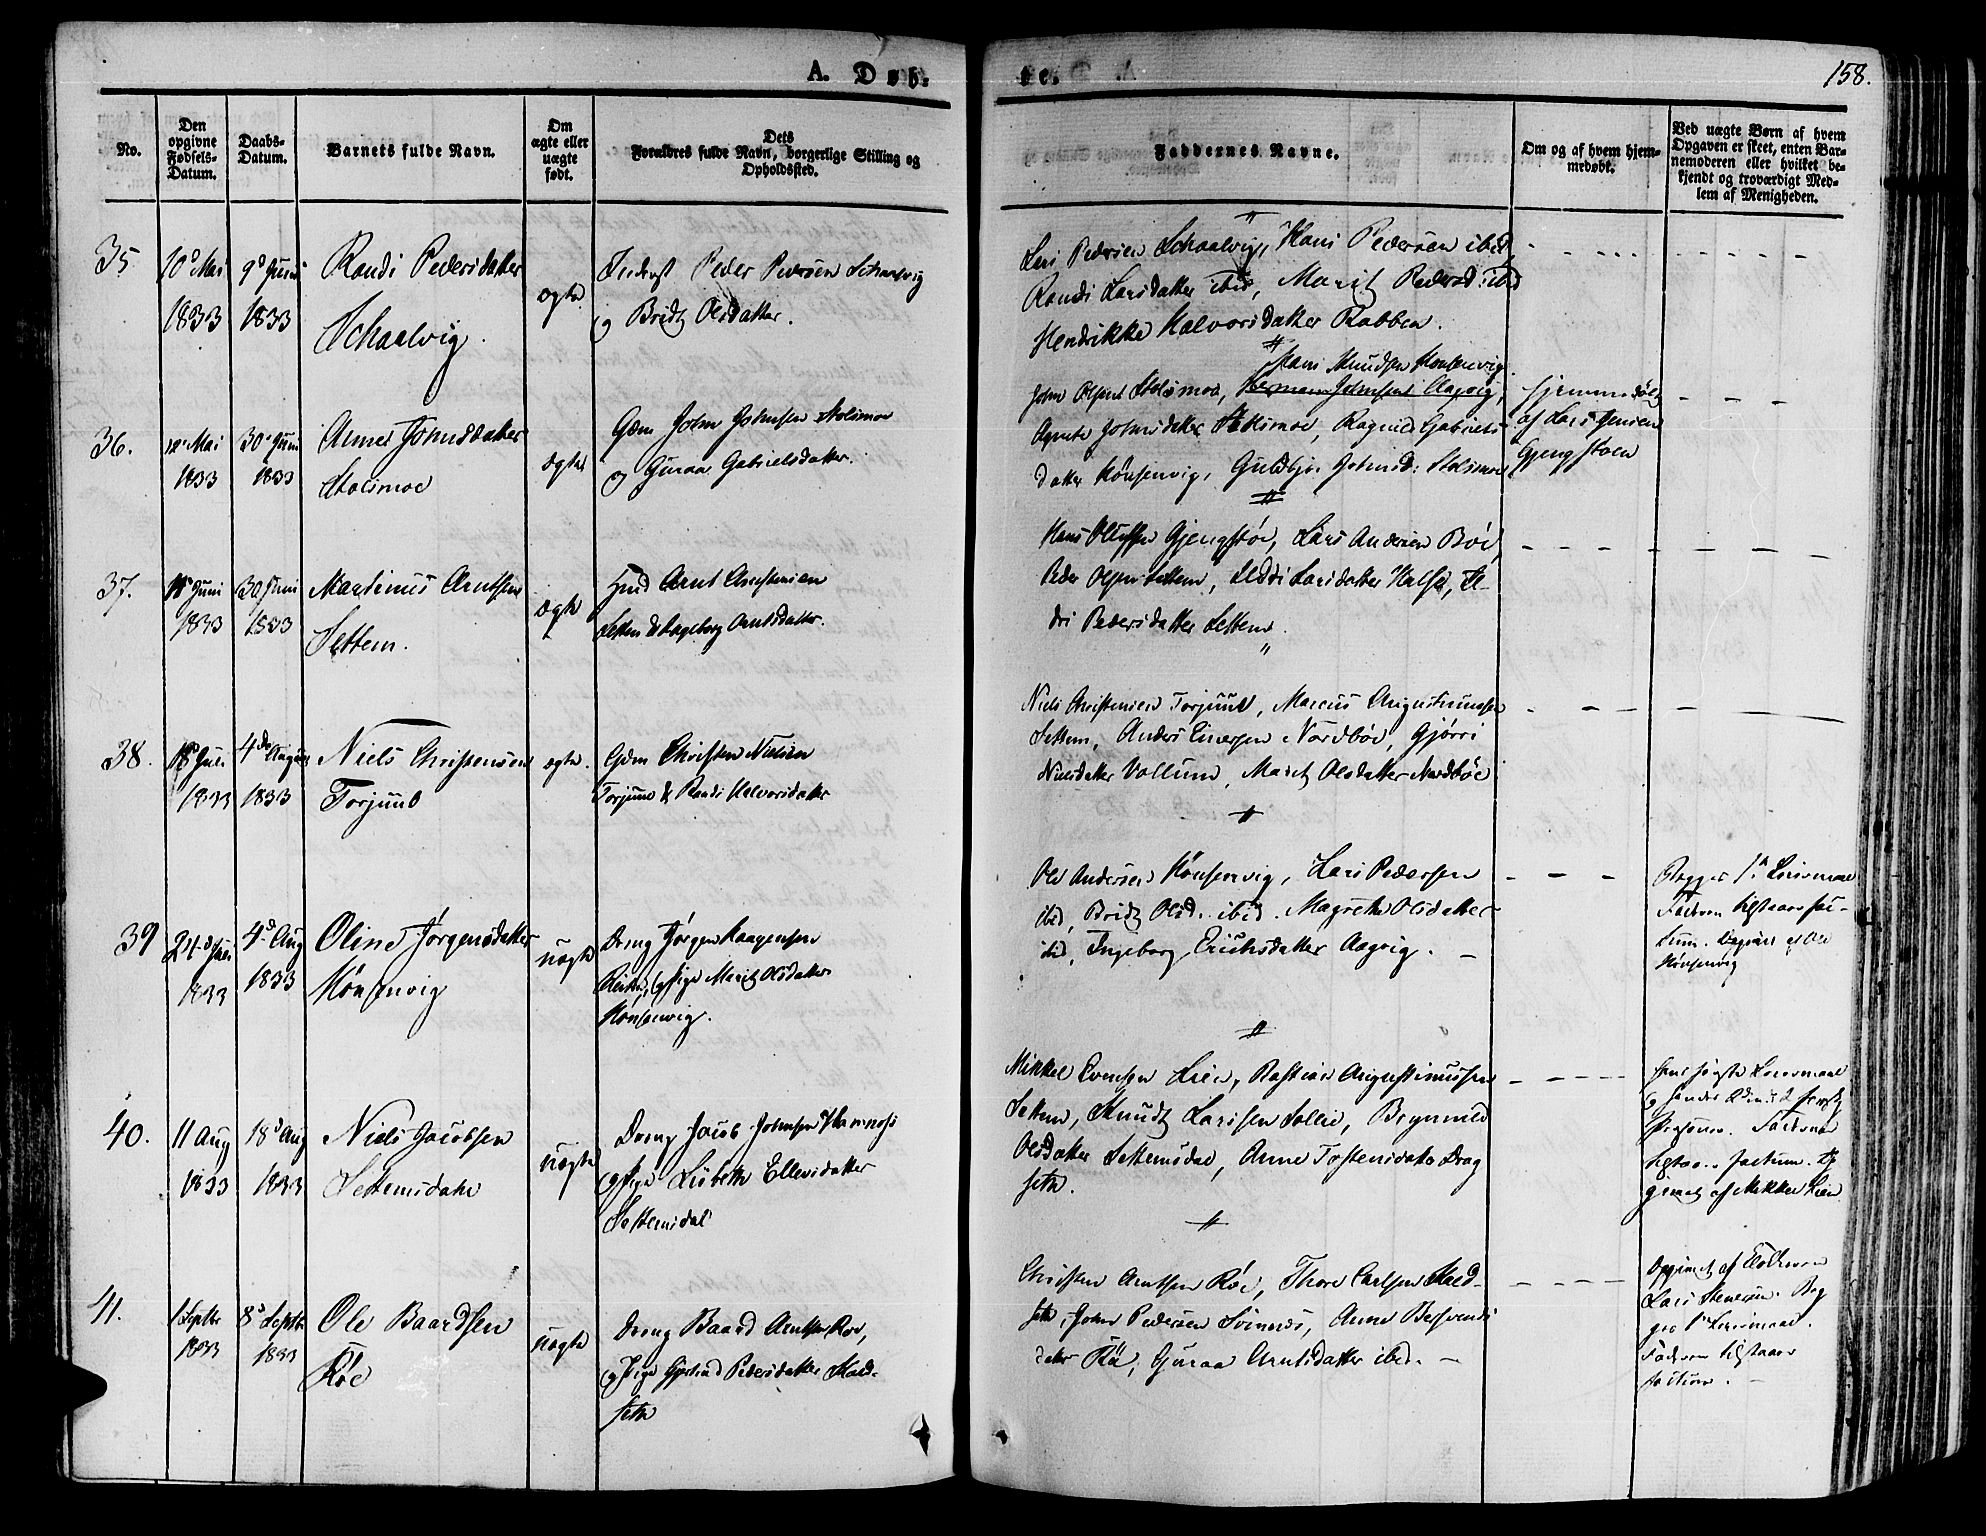 A. Døb-
te.
158.
No.
Den
opgivne
Fødsels-
Datum.
Daabs-
Datum.
Barnets fulde Navn.
Om
ægte eller
uægte
født.
Dets
Forældres fulde Navn, borgerlige Stilling og
Opholdssted.
Faddernes Navne.
Om og af hvem hjem-
medøbt.
Ved uægte Børn af hvem
Opgaven er skeet, enten Bar-
nemoderen eller hvilket be-
kjendt og troværdigt Med-
lem af Menigheden.
35
10de Mai
1833
9de Juni
1833
Randi Pedersdatter
Schaalvig.
ægte
Inderst Peder Pedersen Schaalvig
og Bridt Olsdatter.
Lars Pedersen Schaalvig, Hans Pedersen ibid
Randi Larsdatter ibid, Marit Pedersd: ibid
Hendrikke Halvorsdatter Rabben.
36.
12 Mai
1833
30te Juni
1833
Johnsdatter
Stolsmoe
ægte
Gdm John Johnsen Stolsmoe
og Guraa Gabrielsdatter.
Hans Knudsen Hønsenvig
John Olsen Stolsmoe, Herman Johnsen Aagvig,
Agnete Johnsdatter Stolsmoe, Ragnild Gabriels
datter Hønsenvig, Guldbjør Johnsd: Stolsmoe
hjemmedøbt
af Lars Jensen
Gjengstøen
37.
Juni
1833
30 Juni
1833
Martinus Arntsen
Settem.
ægte
Hmd Arnt Christensen
Settem & Ingeborg Arntsdatter.
Hans Oluffsen Gjengstøe, Lars Andersen Bøe
Peder Olsen Settem, Ildri Larsdatter Halse, Il-
dri Pedersdatter Settem.
38.
18 Juli
1833
4de August
1833
Niels Christensen
Torjuul
ægte.
Gdm Christen Nielsen
Torjuul & Randi Halvorsdatter
Niels Christensen Torjuul, Marcus Augustinussen
Settem, Anders Einersen Nordbøe, Gjørri
Nielsdatter Vollum, Marit Olsdatter Nordbøe
39
24de Juli
1833
4de Aug
1833
Oline Jørgensdatter
Hønsenvig
uægte
Dreng Jørgen Haagensen
og Pige Marit Olsdatter
Hønsenvig.
Ole Andersen Hønsenvig, Lars Pedersen
ibid, Bridt Olsd. ibid. Magrethe Olsdatter
ibid, Ingeborg Erichsdatter Aagvig.
Begges 1ste Leiermaal
Faderen tilstaar fac-
tum. Opgivet af Ole
Hønsenvig
40.
11 Aug
1833
18de Aug
1833
Niels Jacobsen
Settemsdale
uægte
Dreng Jacob Johnsen
og Pige Lisbeth Ellevsdatter
Settemsdal
Mikkel Evensen Lien, Bastian Augustinussen
Settem, Knudt Larssen Sollie, Brynnild
Olsdatter Settemsdal, Anne Tostensdatter Drag
seth.
hans første Leiermaal
Faderen
tilstaar factum. Op
givet af Mikkel Lien
41.
1 Septbr
1833
8de Septbr
1833
Ole Baardsen
Røe
uægte
Dreng Baard Arntsen Røe,
og Pige Gjertrud Pedersdatter Hald-
seth
Christen Arntsen Røe, Thore Carlsen Hald-
seth, John Pedersen Svinnes, Anne
datter Røe, Guraa Arntsdatter ibid.
Opgivet af Faderen
Lars Stenersen. Beg
ges 1ste Leiermaal.
Faderen tilstaar
factum.